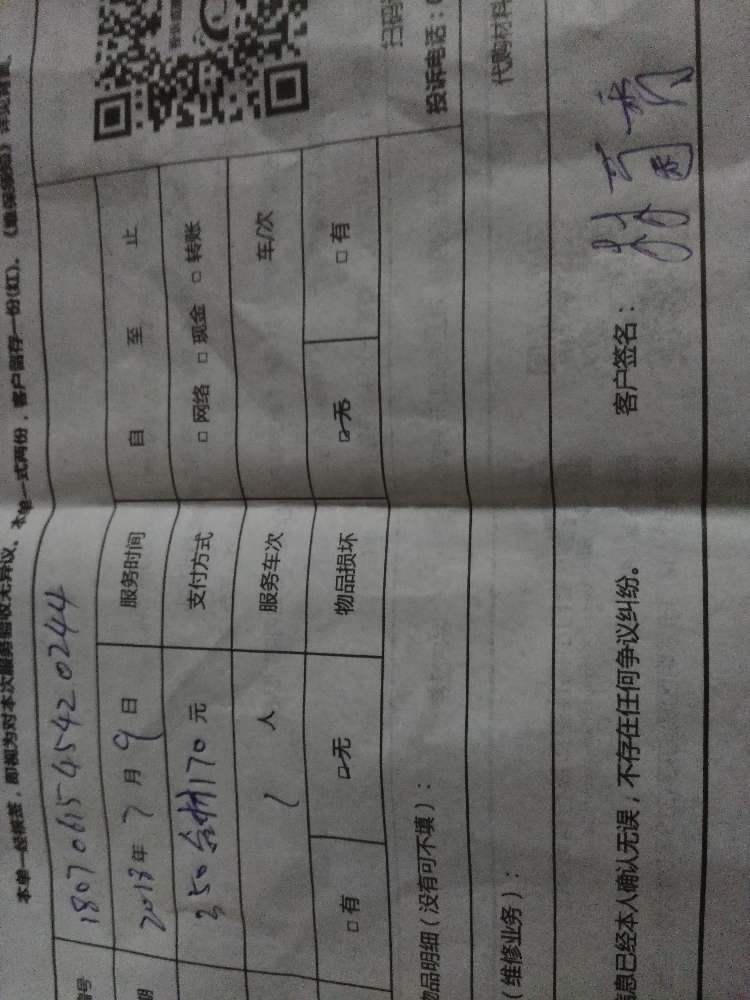 本单一经核签，即视为对本次服务验收无异议、本单一式两份，客户留存一份(红)、
编号 180706154542 0244
期 2018年 7月 9日 服务时间 自 至 止
350 170 元 支付方式 □ 网络 □ 现金 □ 转账
1 人 服务车次 车/次
□ 有 ☑ 无 物品损坏 ☑ 无 □ 有
物品明细（没有可不填）：
扫码
投诉电话：0
（维修业务）：
代购材料
息已经本人确认无误，不存在任何争议纠纷。
客户签名：